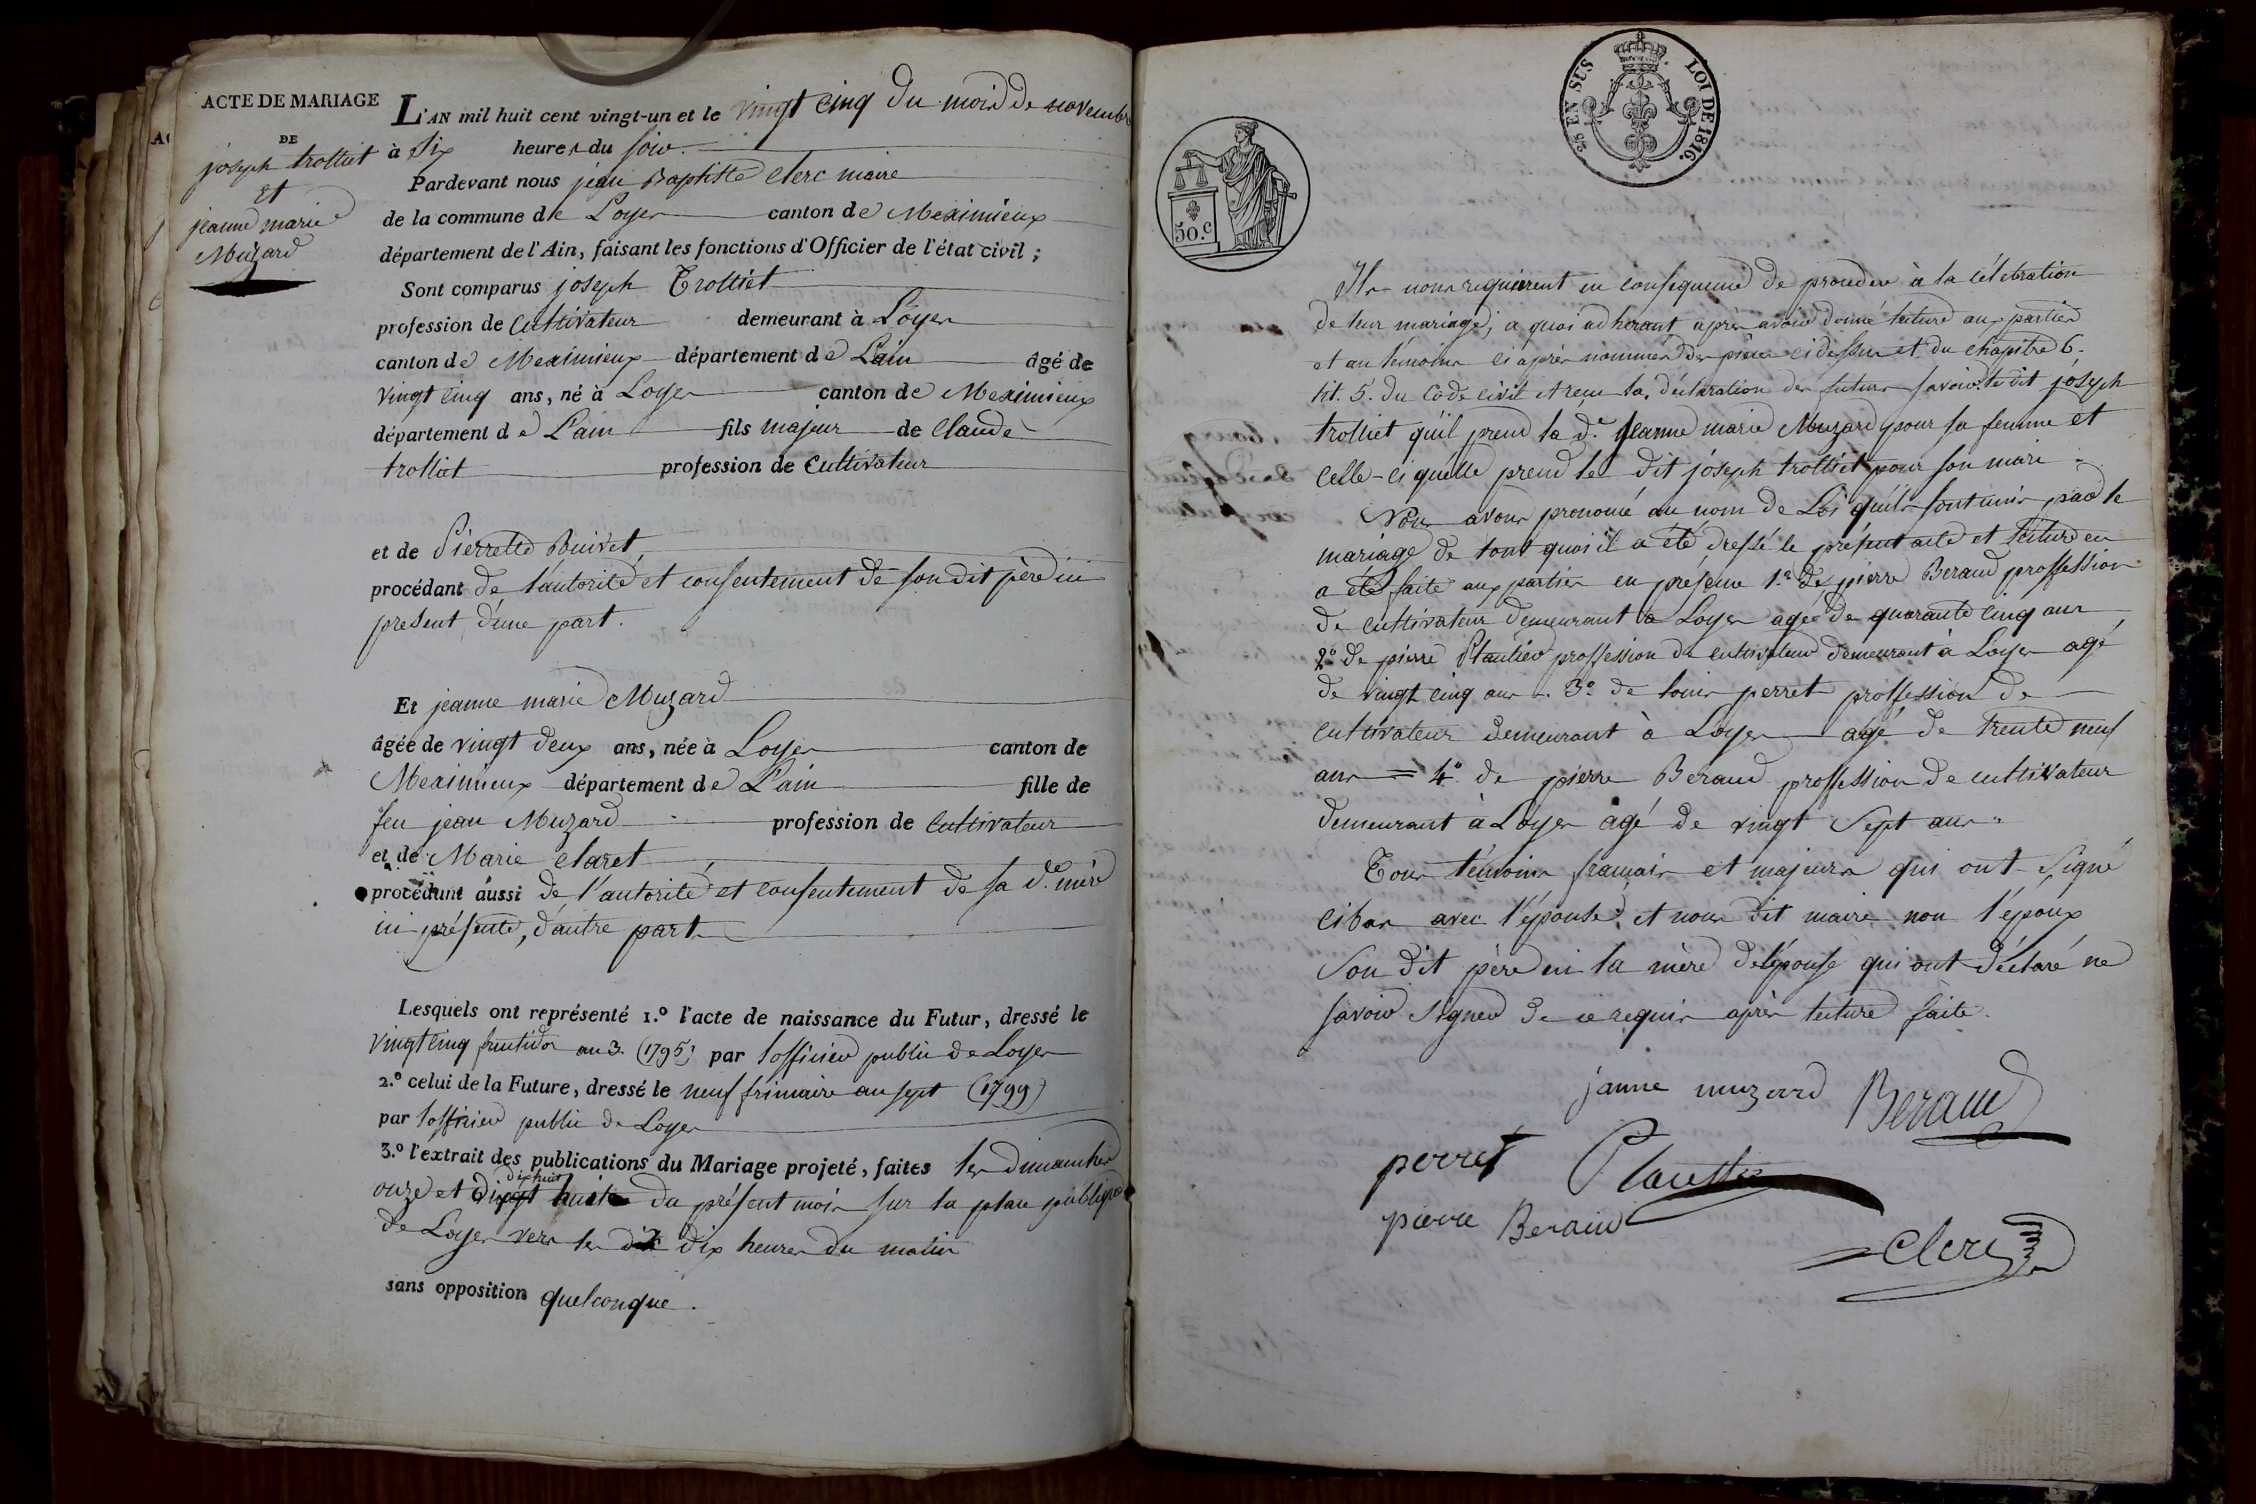 ACTE DE MARIAGE
DE
joseph trolliet
Et
jeanne marie
Muzard
L'AN mil huit cent vingt-un et le vingt cinq du mois de novembre
à Six heures du soir.
Pardevant nous jean Baptiste Clerc maire
de la commune de Loyes canton de Meximieux
département de l'Ain, faisant les fonctions d'Officier de l'état civil ;
Sont comparus joseph Trolliet
profession de Cultivateur demeurant à Loyes
canton de Meximieux département de L'ain âgé de
vingt cinq ans, né à Loyes canton de Meximieux
département de L'ain fils majeur de Claude
trolliet profession de Cultivateur
et de Pierrette Buivet
procédant de l'autorité et consentement de son dit père ici
present d'une part.
Et jeanne marie Muzard
âgée de vingt deux ans, née à Loyes canton de
Meximieux département de L'ain fille de
feu jean Muzard profession de Cultivateur
et de Marie Claret
procédant aussi de l'autorité et consentement de sa de. mère
ici présente, d'autre part
Lesquels ont représenté 1.º l'acte de naissance du Futur, dressé le
vingt cinq fructidor an 3. (1795) par l'officier public de Loyes
2.º celui de la Future, dressé le neuf frimaire an sept (1799)
par l'officier public de Loyes
3.º l'extrait des publications du Mariage projeté, faites les dimanches
dixhuit
onze et vingt huit du présent mois sur la place publique
de Loyes vers les dix dix heures du matin
sans opposition quelconque.
50.c
25 EN SUS LOI DE 1816.
Ils nous requierent en consequence de proceder à la célébration
de leur mariage; a quoi adherant après avoir donné lecture aux parties
et aux témoins ci après nommés des pièces ci dessus et du chapitre 6.
tit. 5. du Code civil et reçu la déclaration des futurs savoir le dit joseph
trolliet qu'il prend la de. jeanne marie Muzard pour sa femme et
celle-ci qu'elle prend le dit joseph trolliet pour son mari
Nous avons prenoncé au nom de Loi qu'ils sont unis par le
mariage de tout quoi il a été dressé le présent acte et lecture en
a été faite aux parties en présence 1.º de pierre Beraud proffession
de cultivateur demeurant à Loyes agée de quarante cinq ans
2º de pierre Plautier proffession de cultivateur demeurant à Loyes agé
de vingt cinq ans. 3º de louis perret proffession de
cultivateur demeurant à Loyes agé de trente neuf
ans = 4º. de pierre Beraud proffession de cultivateur
demeurant à Loyes agé de vingt Sept ans
Tous témoins français et majeurs qui ont Signé
cibas avec l'épouse et nous dit maire non l'époux
Son dit père ni la mère de l'épouse qui ont déclaré ne
savoir signer de ce requis après lecture faite.
janne muzard Beraud
perret Plautier
pierre Beraud
Clerc